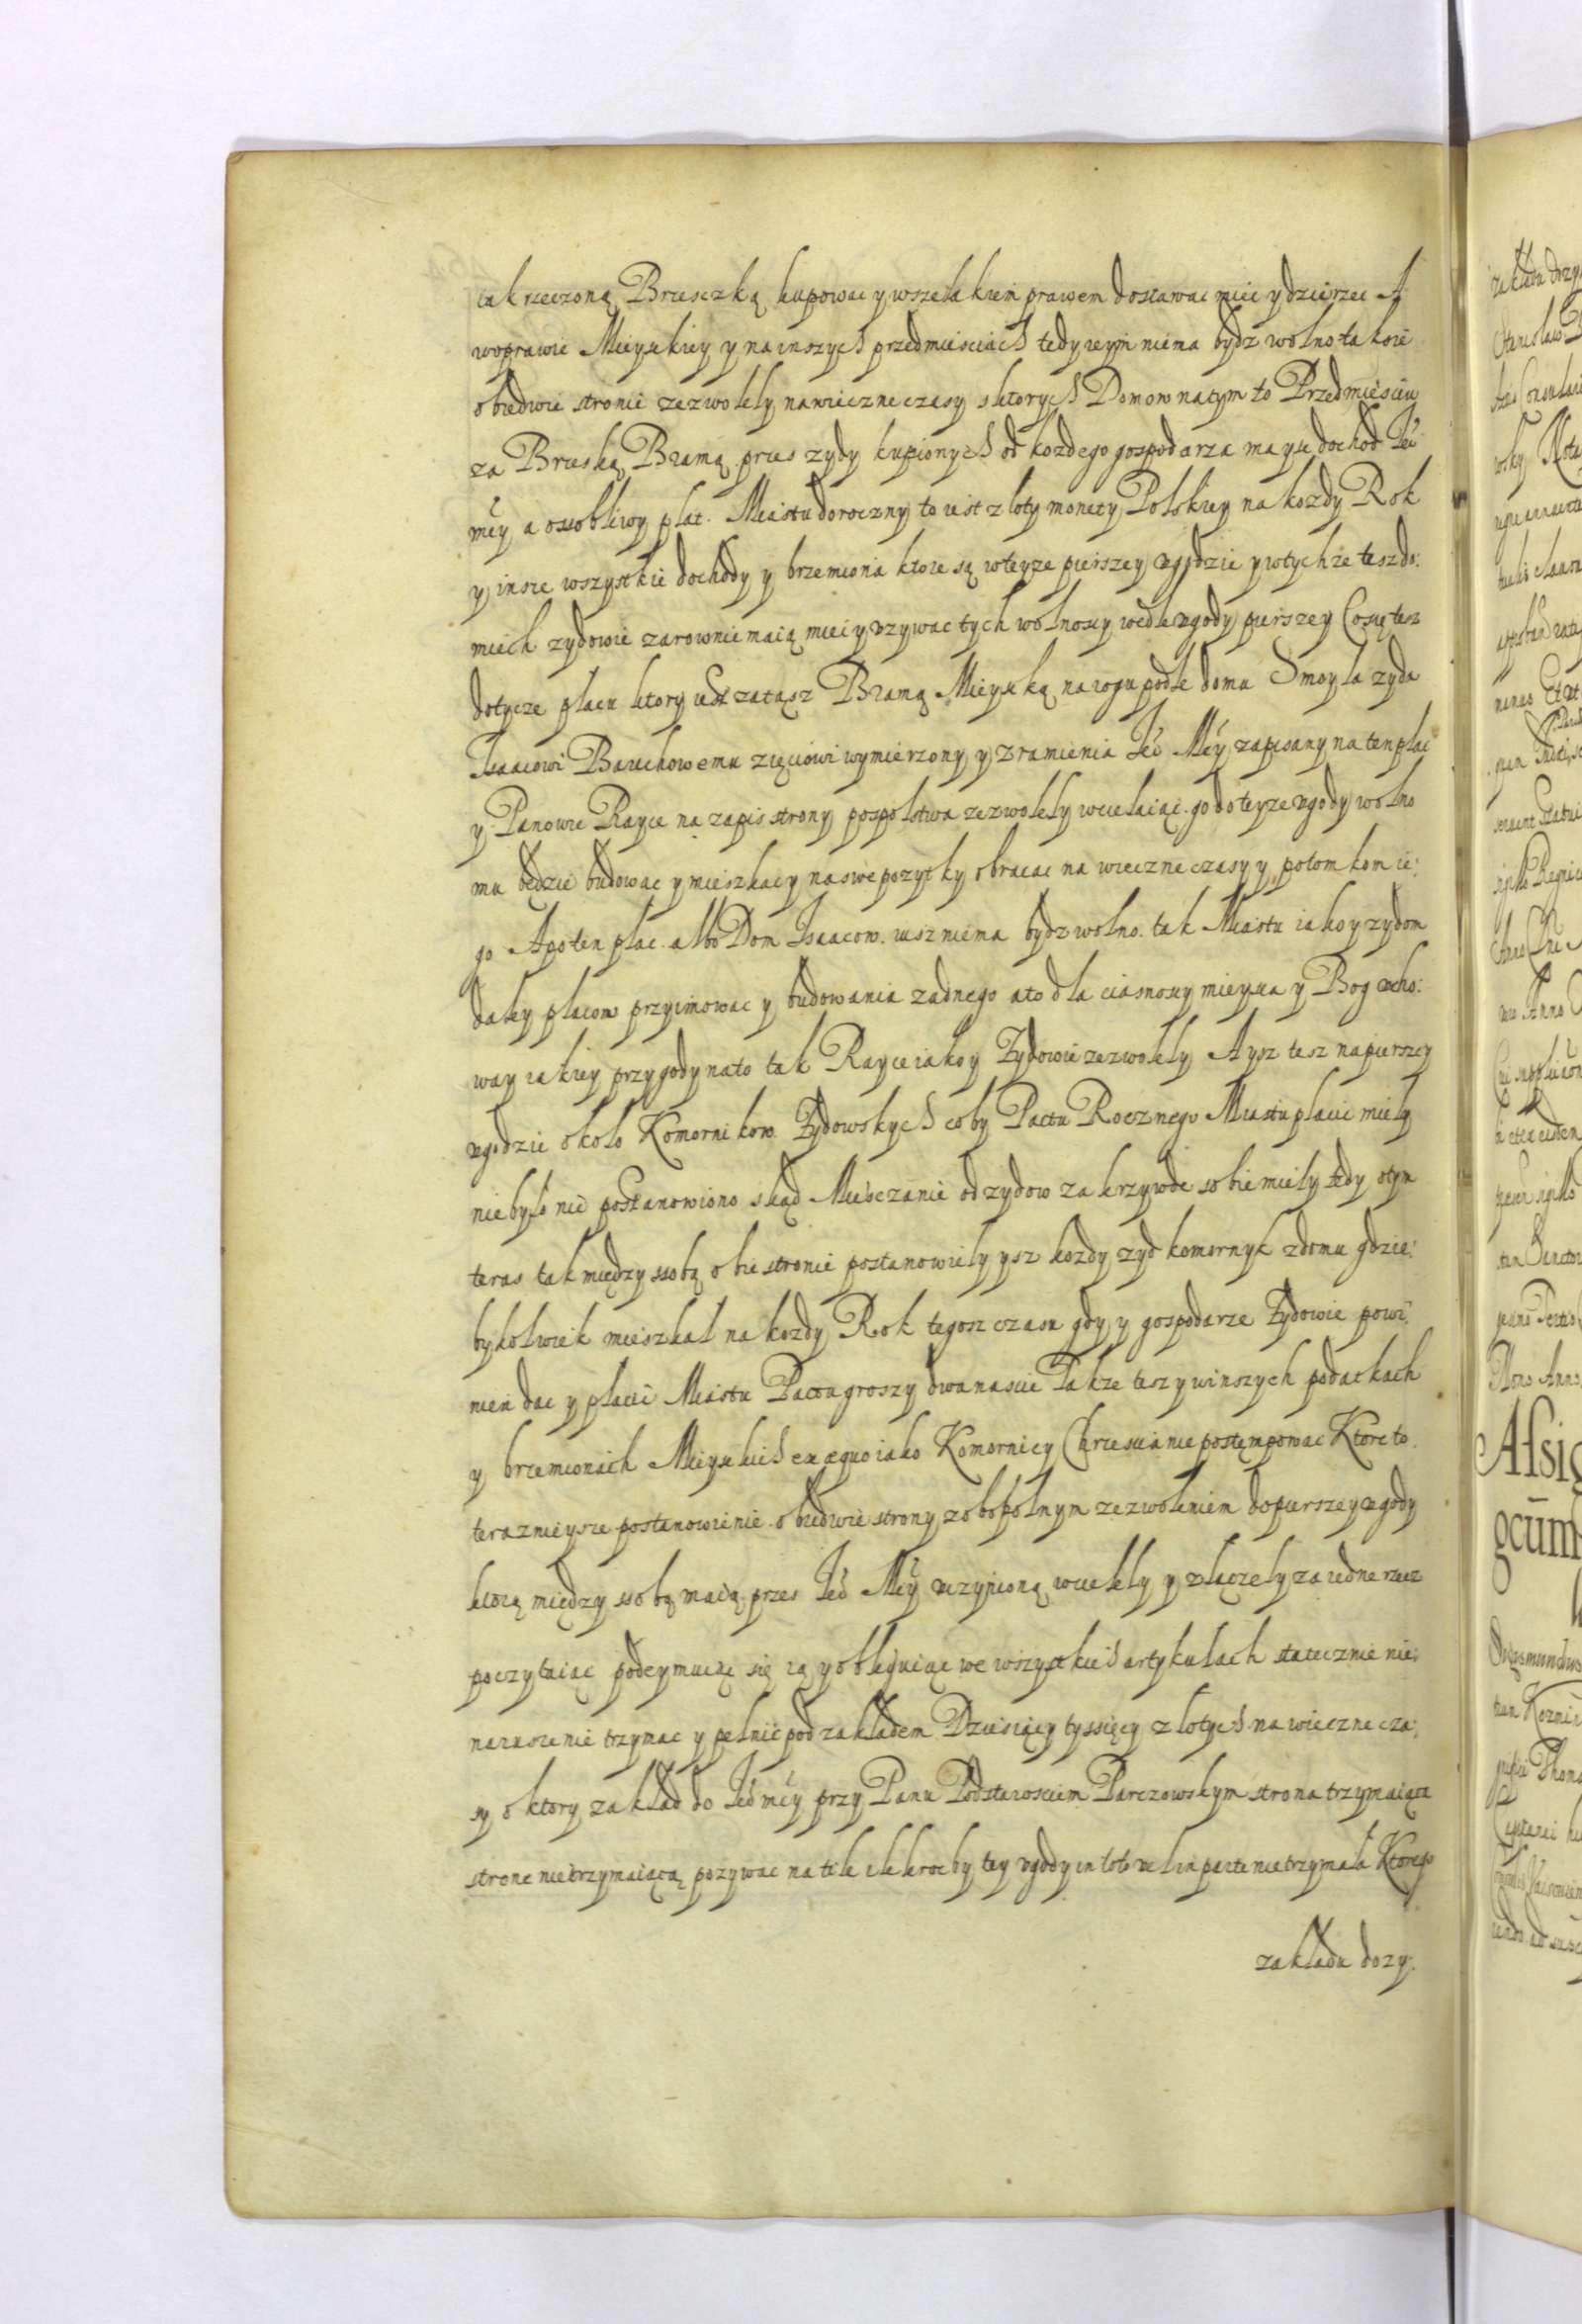 tak rzeczoną Bruseczką kupowac y wszelakiem prawem dostawac miec y dzierzec A
woprawie Mieyskiey y nainszych przedmiesciach tedy wym niema bydz wolno takoie
obiedwie stronie zezwolely nawieczne czasy sktorych Domow natym to Przedmiesciu
za Bruską Bramą przes zydy kupionych od kozdego gospodarza ma ysc dochod Jeo
mcy a ossobliwy plat. Miastu doroczny to iest zloty monety Polskiey na kozdy Rok
y insze wszystkie dochody y brzemiona ktore są wteyze pierszey vgodzie y wtychze tesz do:
miech zydowie zarownie maią miec y vzywac tych wolnoscy wedle vgody pierszey Co się tesz
dotycze placu ktory iest zatąsz Bramą Mieyską narogu podle domu Smoyla zyda
Isaacowi Baruchowemu zięciowi wymierzony y zramienia Jeo Mcy zapisany na ten plac
y Panowie Rayce na zapis strony pospolstwa zezwolely wcielaiąc go do teyze vgody wolno
mu będzie budowac y mieszkac y na swe pozytky obracac na wieczne czasy y potomkom ie:
go A po ten plac albo Dom Isaacow. iusz niema bydz wolno. tak Miastu iako y zydom
daley placow przyimowac y budowania zadnego a to dla ciasnoscy mieysca y Bog vcho:
way iakiey przygody nato tak Rayce iako y Zydowie zezwolely A ysz tesz napierszey
vgodzie okolo Komornikow Zydowskych coby Pactu Rocznego Miastu placic miely
niebylo nic postanowiono skąd Miesczanie od zydow za krzywde sobie miely tedy otym
teras tak między ssobą obie stronie postanowiely ysz kozdy zyd komornyk zdomu gdzie:
bykolwiek mieszkal na kozdy Rok tegosz czasu gdy y gospodarze Zydowie powi:
nien dac y placic Miastu Pactu groszy dwanascie Takze tesz y winszych podatkach
y brzemionach Mieyskich ex aequo iako Komornicy Chrzescianie postęmpowac Ktore to
teraznieysze postanowienie obiedwie strony zobopolnym zezwoleniem do pierszey vgody
ktorą między ssobą maią przes Jeo Mcy vczynioną wcielely y zlączely za iedne rzecz
poczytaiąc podeymuiąc się ią y obliguiąc we wszystkich artykulach statecznie nie:
naruszenie trzymac y pelnic pod zakladem Dziesiący tyssięcy zlotych na wieczne cza:
sy o ktory zaklad do Jeo mcy przy Panu Podstarosciem Parczowskym strona trzymaiąca
strone nietrzymaiącą pozywac na tile ilekrocby tey vgody in toto vel in parte nie trzymala Ktorego
zakladu dozy: